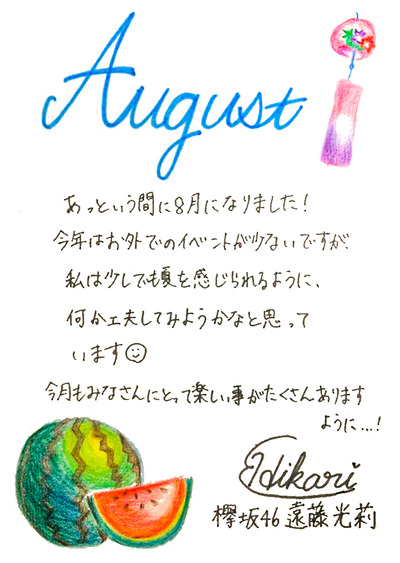 August
あっという間に8月になりました!
今年はお外でのイベントが少ないですが、
私は少しでも夏を感じられるように、
何か工夫してみようかなと思って
います☺
今月もみなさんにとって楽しい事がたくさんあります
ように...!
Hikari
欅坂46 遠藤光莉